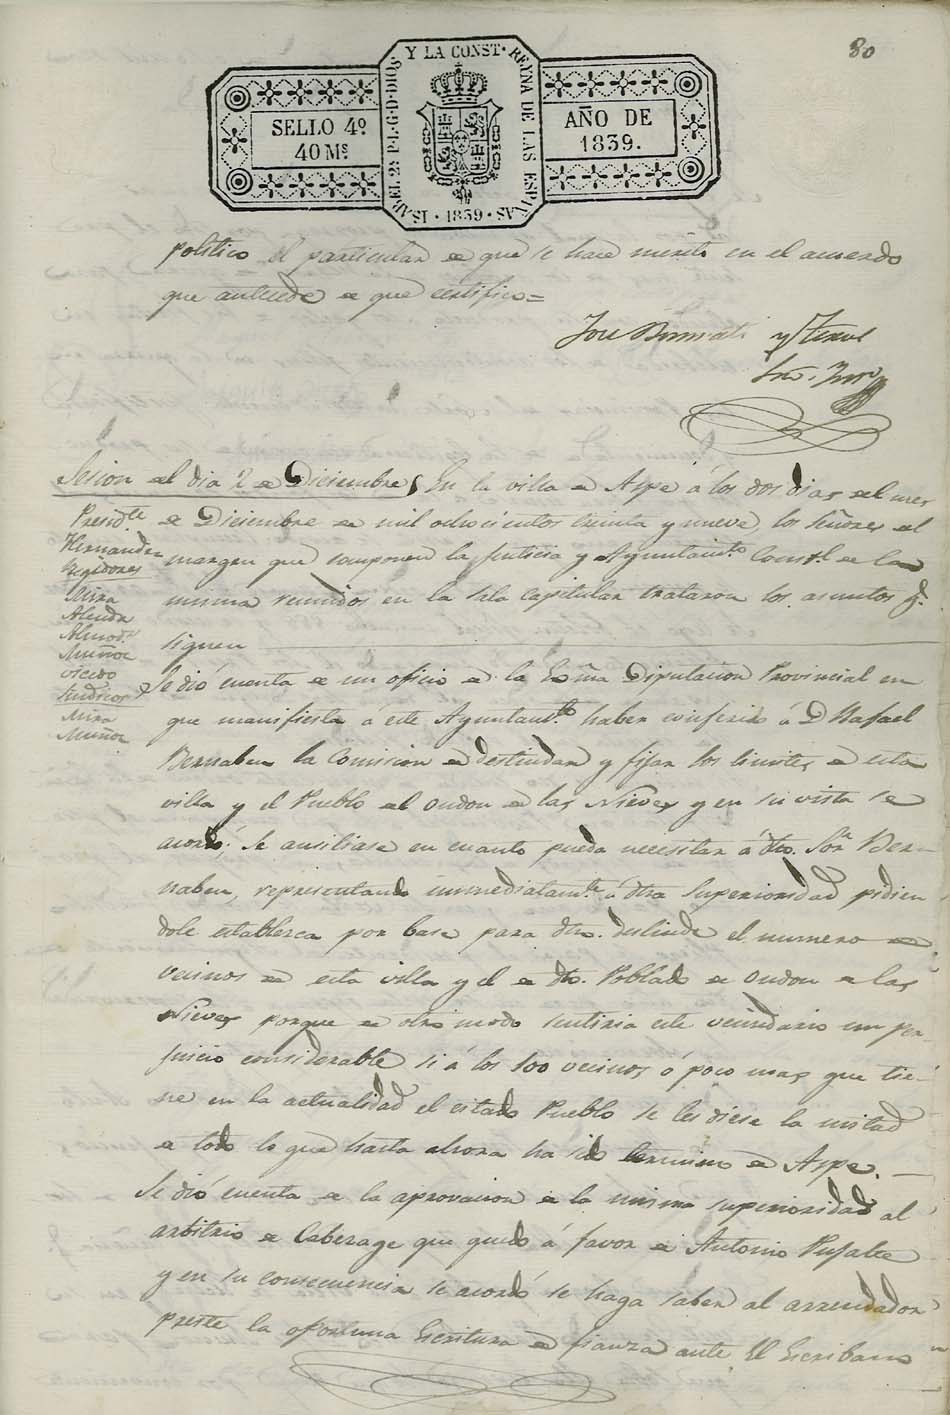 80
ISABEL 2ª P.L.G.D.DIOS Y LA CONST. REYNA DE LAS ESPAÑAS · 1839 ·
SELLO 4º
40 Ms
AÑO DE
1839.
politico el particular de que se hace merito en el acuerdo
que antecede de que certifico=
Jose
Sesion del dia 2 de Diciembre, En la villa de Aspe á los dos dias del mes
Presidte de Diciembre de mil ochocientos treinta y nueve, los Señores del
Hernandez margen que componen la Justicia y Ayuntamto. Constl. de la
Regidores
Mira misma reunidos en la Sala Capitular trataron los asuntos q.
Alenda
Almodr.
siguen
Muñoz
Vicedo
Se dió cuenta de un oficio de la Exma Diputacion Provincial en
Sindicos
Mira que manifiesta á este Ayuntamto. haber conferido á D. Rafael
Muñoz
Bernabeu la Comision de deslindar y fijar los limites de esta
villa y el Pueblo del Ondon de las Nieves y en su vista se
acordó; Se ausiliase en cuanto pueda necesitar á dto. Sor. Ber-
nabeu, representando inmediatamte. á dtra Superioridad pidien
dole establesca por base para dto. deslinde el numero de
vecinos de esta villa y el de dto. Poblado de Ondon de las
Nieves porque de otro modo sentiria este vecindario un per-
juicio considerable si á los 100 vecinos ó poco mas que tie-
ne en la actualidad el citado Pueblo se les diese la mitad
de todo lo que hasta ahora ha sido termino de Aspe.
Se dió cuenta de la aprovacion de la misma superioridad al
arbitrio de Caberage que quedó á favor de Antonio Pujalte
y en su consecuencia se acordó se haga saber al arrendador
preste la oportuna Escritura de fianza ante El Escribano